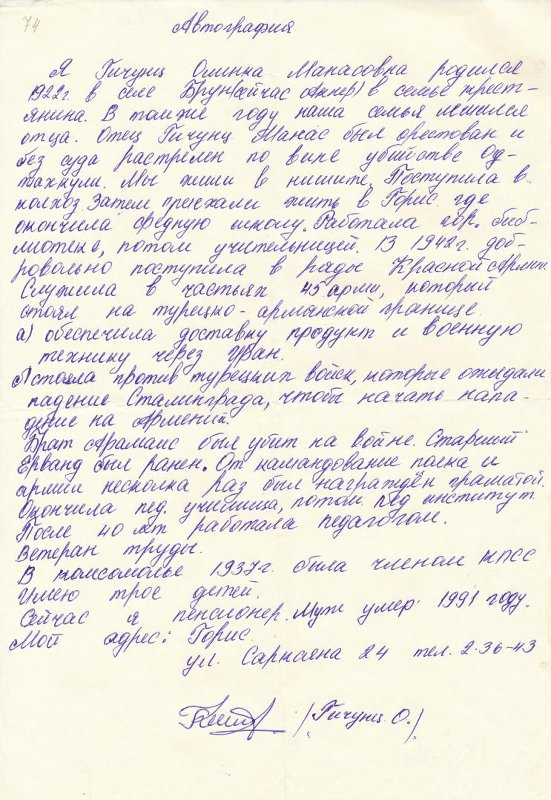 74
Автография
Я Гичунц Олинка Манасовна родился
1922г. в селе Брун(сейчас в семье крест-
янина. В том же году наша семья лишился
отца. Отец Гичунц Манас был орестован и
без суда растрелен по вине убийстве
Мы жили в нишите. Поступила в
колхоз. Затем приехали жить в Горис. где
окончила средную школу. Работала библ-
лиотеке, потом учительницей. В 1942г. доб-
ровольно поступила в ряды Красной Армии.
Служила в частьях 45 арми, который
стоял на турецко-армянской границе.
а) обеспечила доставку продукт и военную
технику через Иран.
стояла против турецких войск, которые ожидали
падение Сталинграда, чтобы начать напа-
дение на Армении.
Брат Арамаис был убит на войне. Старший
Ерванд был ранен. От командование полка и
армии несколка раз был награждён граматой.
Окончила пед. училища, потом пед институт
После 40 лет работала педагогом.
Ветеран труды.
В комсомолье 1937г. была членом КПСС
Имею трое детей.
Сейчас я пенсионер. Муж умер 1991 году.
Мой адрес: Горис.
ул. 24 тел. 2-36-43
(Гичунц О.)